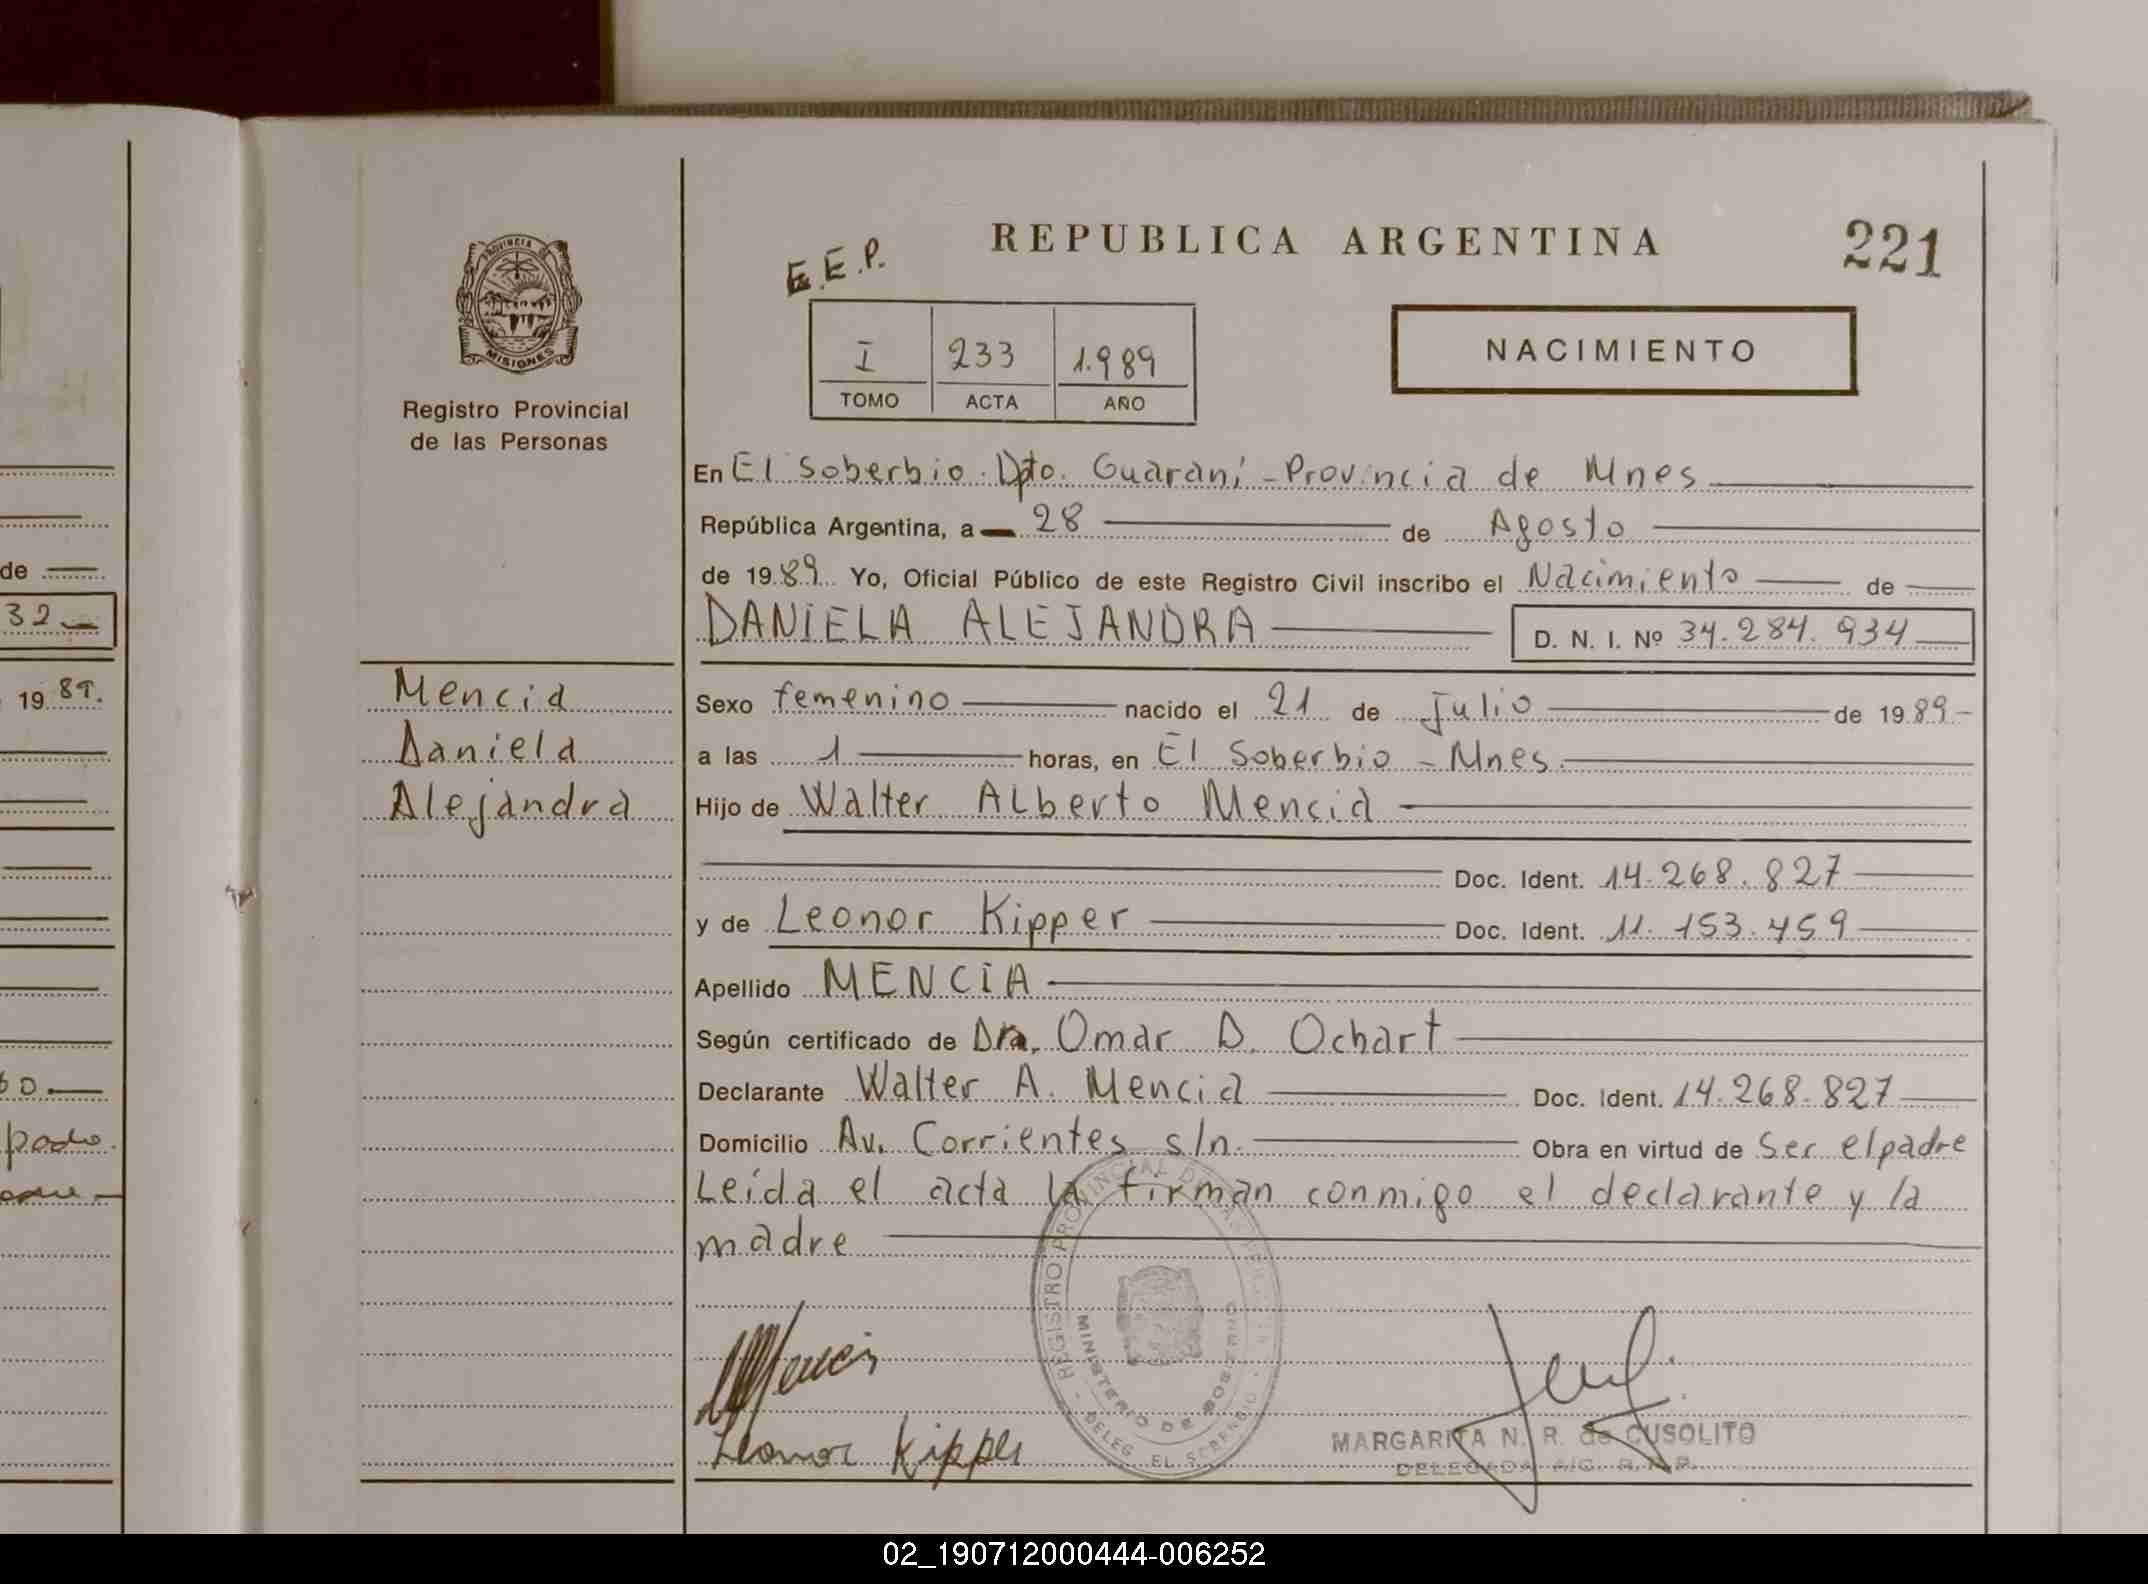 REPUBLICA ARGENTINA
221
E.E.P.
I 233 1.989
TOMO ACTA AÑO
NACIMIENTO
PROVINCIA DE
MISIONES
Registro Provincial
de las Personas
En El Soberbio. Dpto. Guaraní - Provincia de Mnes
República Argentina, a 28 de Agosto
de 1989 Yo, Oficial Público de este Registro Civil inscribo el Nacimiento de
DANIELA ALEJANDRA D. N. I. Nº 34.284.934
Mencia
Daniela
Alejandra
Sexo femenino nacido el 21 de Julio de 1989-
a las 1 horas, en El Soberbio - Mnes.
Hijo de Walter Alberto Mencia
Doc. Ident. 14.268.827
y de Leonor Kipper Doc. Ident. 11.153.459
Apellido MENCIA
Según certificado de Dra. Omar D. Ochart
Declarante Walter A. Mencia Doc. Ident. 14.268.827
Domicilio Av. Corrientes s/n. Obra en virtud de Ser el padre
Leída el acta la firman conmigo el declarante y la
madre
REGISTRO PROVINCIAL DE LAS PERSONAS
MINISTERIO DE GOBIERNO
DELEG. EL SOBERBIO
Leonor Kipper
MARGARITA N. R. de CUSOLITO
DELEGADA A/C. R.P.P.
de
32
19 89.
02_190712000444-006252